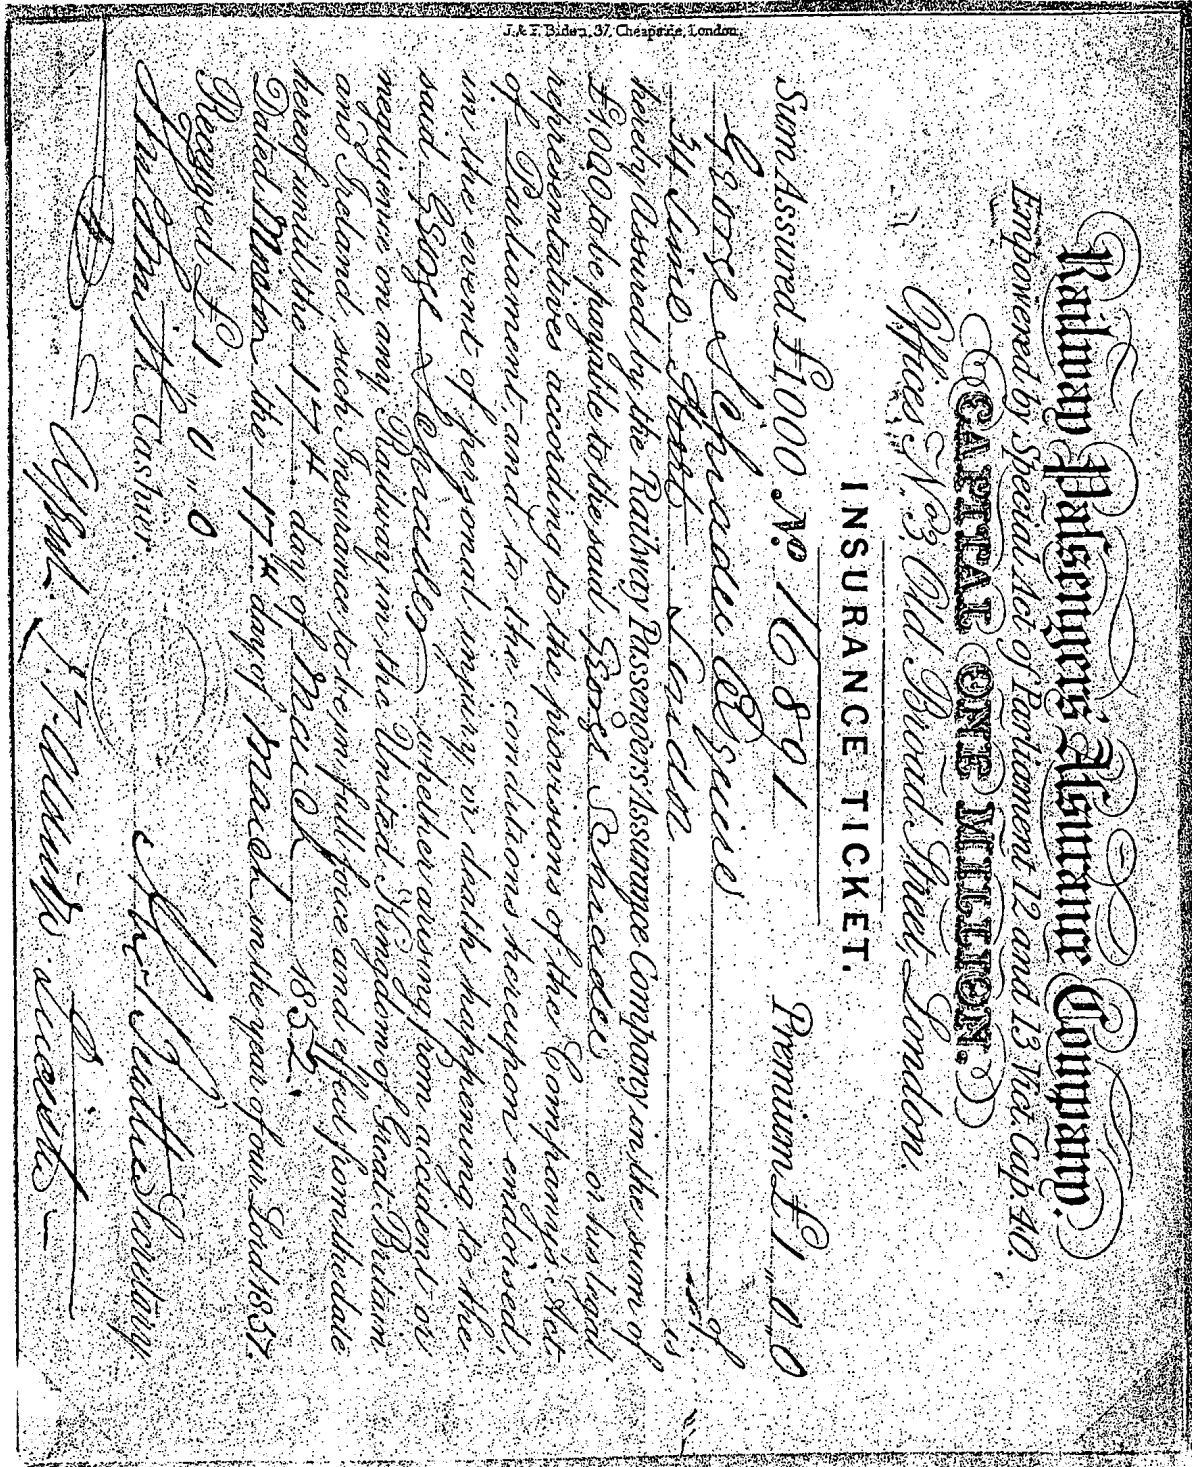 Railway Passengers Assurance Company.
Empowered by Special Act of Parliament 12 and 13 Vict. Cap. 40.
CAPITAL ONE MILLION.
Offices, No. 3, Old Broad Street, London.
INSURANCE TICKET.
Sum Assured £1000 No. 16891 Premium £1 " 0 0
George Schnadee of
34 Lime Street London is
hereby Assured by the Railway Passengers Assurance Company in the sum of
£1,000 to be payable to the said George Schnadee or his legal
representatives according to the provisions of the Company's Act
of Parliament, and to the conditions hereupon endorsed,
in the event of personal injury or death happening to the
said George Schnadee whether arising from accident or
negligence on any Railway in the United Kingdom of Great Britain
and Ireland, such Insurance to be in full force and effect from the date
hereof until the 17th day of March 1852.
Dated the 17th day of March in the year of our Lord 1851.
Received £1 " 0 " 0
Cashier. Secretary.
J. & F. Biden, 37, Cheapside, London.